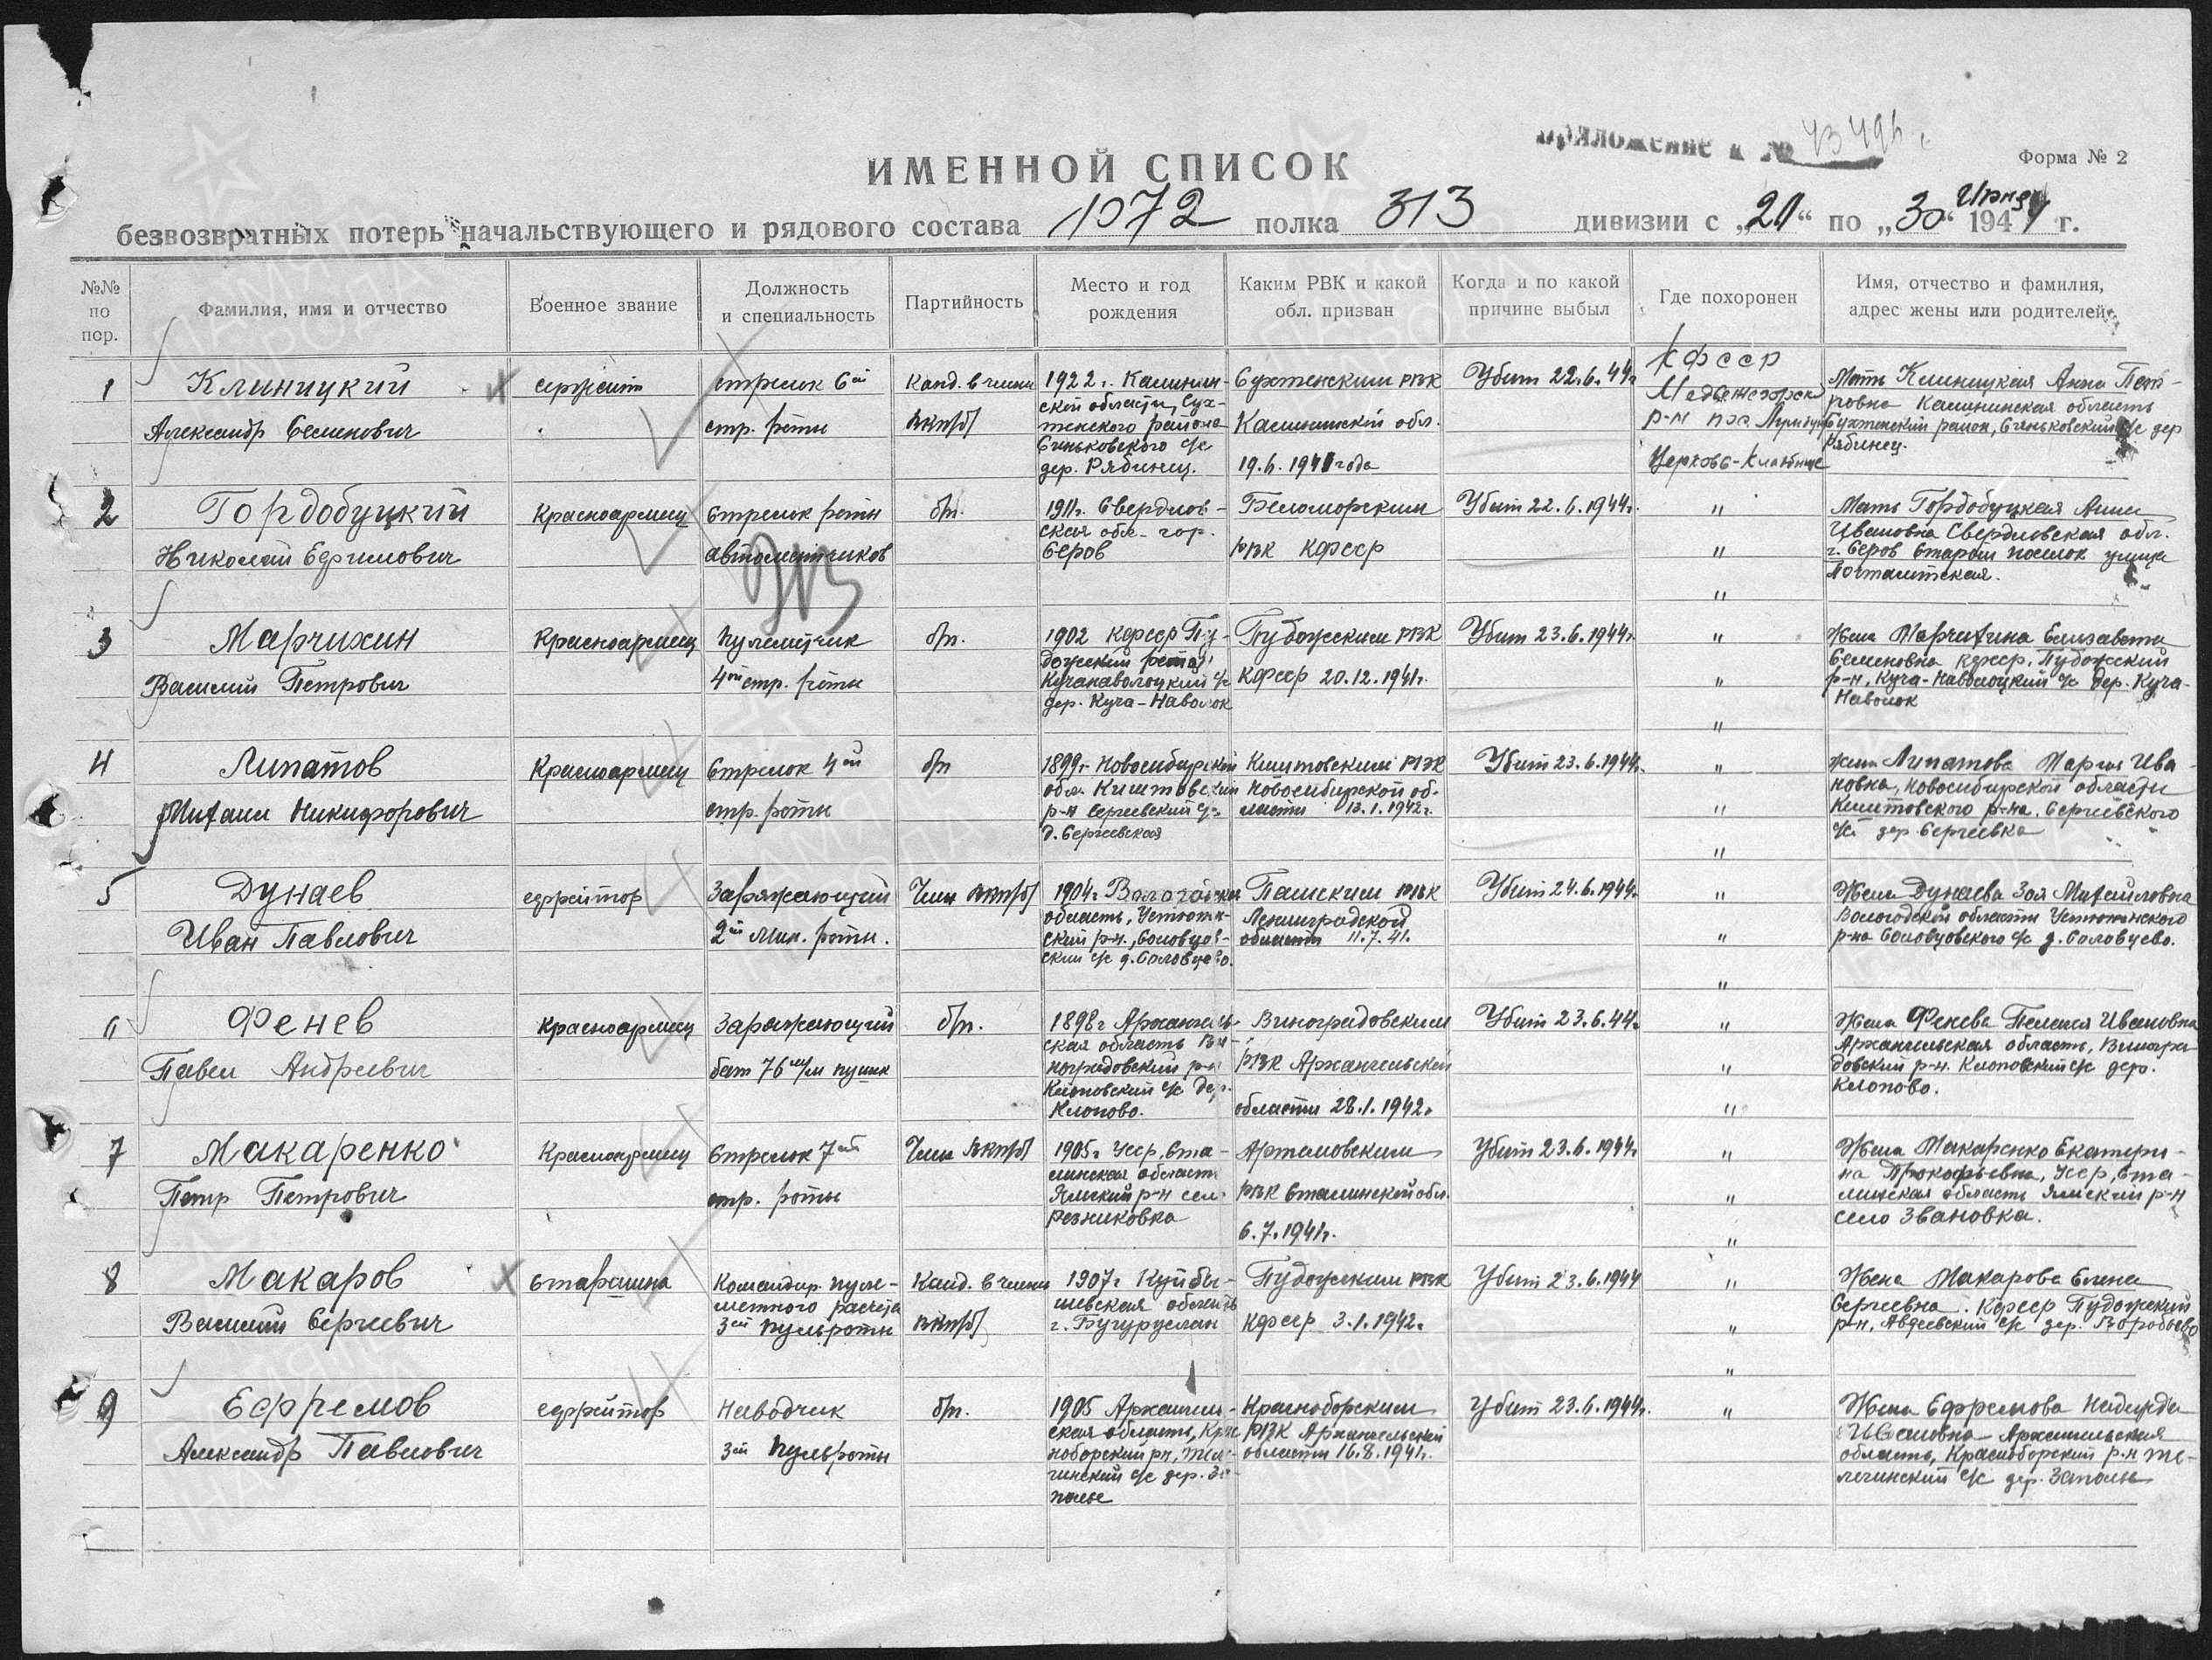 Приложение к №
Форма № 2
ИМЕННОЙ СПИСОК
безвозвратных потерь начальствующего и рядового состава 1072 полка 313 дивизии с „21“ по „30“ Июня 1944 г.
№№ по пор.
Фамилия, имя и отчество
Военное звание
Должность и специальность
Партийность
Место и год рождения
Каким РВК и какой обл. призван
Когда и по какой причине выбыл
Где похоронен
Имя, отчество и фамилия, адрес жены или родителей
1
Клиницкий
Александр Семенович
сержант
стрелок 6ой
стр. роты
Канд. в члены
ВКП/б/
1922 г. Калинин-
ской области, Сух-
женского района
Сеньковского с/с
дер. Рябинец.
Калининской обл.
Убит 22.6.44г
КФССР
р-н
Мать Клиницкая Анна Пет-
ровна Калининская область
Рябинец.
2
Гордобуцкий
Николай Ефимович
Красноармеец
Стрелок роты
автоматчиков
б/п.
1911г. Свердлов-
ская обл. гор.
Серов
Беломорским
РВК КФССР
Убит 22.6.1944г.
"
"
"
Мать Гордобуцкая Анна
Ивановна Свердловская обл.
г. Серов Старый поселок улица
Почтамтская.
3
Марчихин
Василий Петрович
Красноармеец
пулеметчик
4ой стр. роты
б/п.
1902 КФССР Пу-
дожский
Куганаволоцкий с/с
дер. Куга-Наволок
Пудожским РВК
КФССР 20.12.1941г.
Убит 23.6.1944г.
"
"
"
Жена Марчихина Елизавета
Семеновна КФССР, Пудожский
р-н, Куга-Наволоцкий с/с дер. Куга-
Наволок
4
Липатов
Михаил Никифорович
Красноармеец
Стрелок 4ой
стр. роты
б/п
1899г. Новосибирской
обл. Кыштовский
р-н Сергеевский с/с
д. Сергеевская
Кыштовским РВК
Новосибирской об-
ласти 13.1.1942г.
Убит 23.6.1944г.
"
"
"
жена Липатова Мария Ива-
новна, Новосибирской области
Кыштовского р-на. Сергеевского
с/с дер Сергеевка
5
Дунаев
Иван Павлович
ефрейтор
Заряжающий
2ой мин. роты.
Член ВКП/б/
1904г. Вологодская
область, Устюжен-
ский р-н., Соловцов-
ский с/с д. Соловцево.
Пашским РВК
Ленинградской
области 11.7.41.
Убит 24.6.1944г.
"
"
"
Жена Дунаева Зоя Михайловна
Вологодской области Устюженского
р-на Соловцовского с/с д. Соловцево.
6
Фенев
Павел Андреевич
Красноармеец
Заряжающий
бат 76 м/м пушек
б/п.
1898г Архангель-
ская область Ви-
ноградовский р-н
Клоповский с/с дер.
Клопово.
Виноградовским
РВК Архангельской
области 28.1.1942г
Убит 23.6.44г
"
"
"
Жена Фенева Пелагея Ивановна
Архангельская область, Виногра-
довский р-н. Клоповский с/с дер.
Клопово.
7
Макаренко
Петр Петрович
Красноармеец
Стрелок 7ой
стр. роты
Член ВКП/б/
1905г УССР, Ста-
линская область
Ямский р-н село
Резниковка
Артемовским
РВК Сталинской обл.
6.7.1941г.
Убит 23.6.1944г
"
"
"
Жена Макаренко Екатери-
на Прокофьевна, УССР, Ста-
линская область Ямский р-н
село Звановка.
8
Макаров
Василий Сергеевич
Старшина
Командир пуле-
метного расчета
3ей пульроты
Канд. в члены
ВКП/б/
1907г Куйбы-
шевская область
г. Бугуруслан
Пудожским РВК
КФССР 3.1.1942г
Убит 23.6.1944
"
"
"
Жена Макарова Елена
Сергеевна. КФССР Пудожский
р-н, Авдеевский с/с дер. Воробьево
9
Ефремов
Александр Павлович
ефрейтор
Наводчик
3ей пульроты
б/п.
1905 Архангель-
ская область, Крас
ноборский рн,
гинский с/с дер. За-
полье
Красноборским
РВК Архангельской
области 16.8.1941г.
Убит 23.6.1944г.
"
Жена Ефремова Надежда
Ивановна Архангельская
область, Красноборский р-н Те-
легинский с/с дер. Заполье